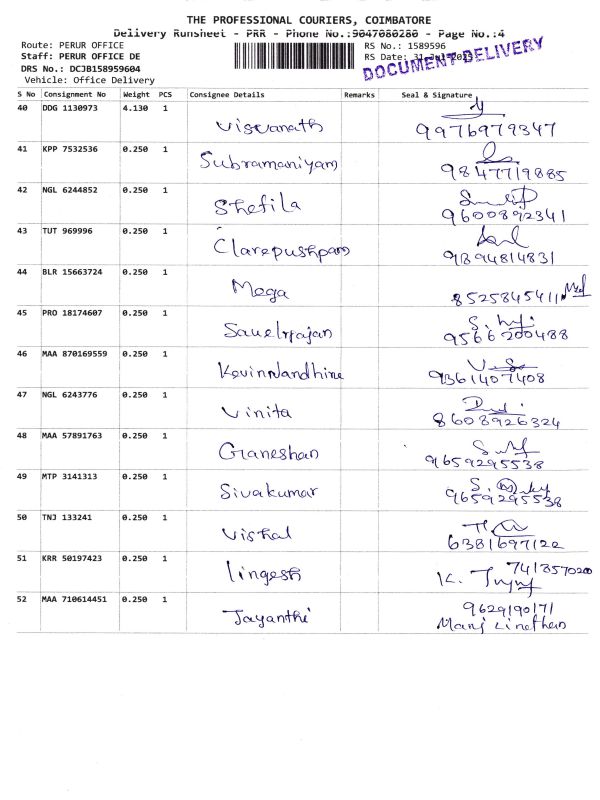 THE PROFESSIONAL COURIERS, COIMBATORE
Delivery Runsheet - PRR - Phone No.:9047080280 - Page No.:4
Route: PERUR OFFICE
RS No.: 1589596
Staff: PERUR OFFICE DE
RS Date: 31-Jul-2025
DOCUMENT DELIVERY
DRS No.: DCJB158959604
Vehicle: Office Delivery
S No Consignment No Weight PCS Consignee Details Remarks Seal & Signature
40 DDG 1130973 4.130 1
Viswanath 9976979347
41 KPP 7532536 0.250 1
Subramaniyam 9847719885
42 NGL 6244852 0.250 1
Shefila 9600892341
43 TUT 969996 0.250 1
Clarepushpam 9894814831
44 BLR 15663724 0.250 1
Mega 8525845411
45 PRO 18174607 0.250 1
9566200488
46 MAA 870169559 0.250 1
KevinNandhine 9361407408
47 NGL 6243776 0.250 1
Vinita 8608926324
48 MAA 57891763 0.250 1
Ganeshan 9659295538
49 MTP 3141313 0.250 1
Sivakumar 9659295538
50 TNJ 133241 0.250 1
Vishal 6381697122
51 KRR 50197423 0.250 1
lingesh 7418570200
52 MAA 710614451 0.250 1
Jayanthi 9629190171